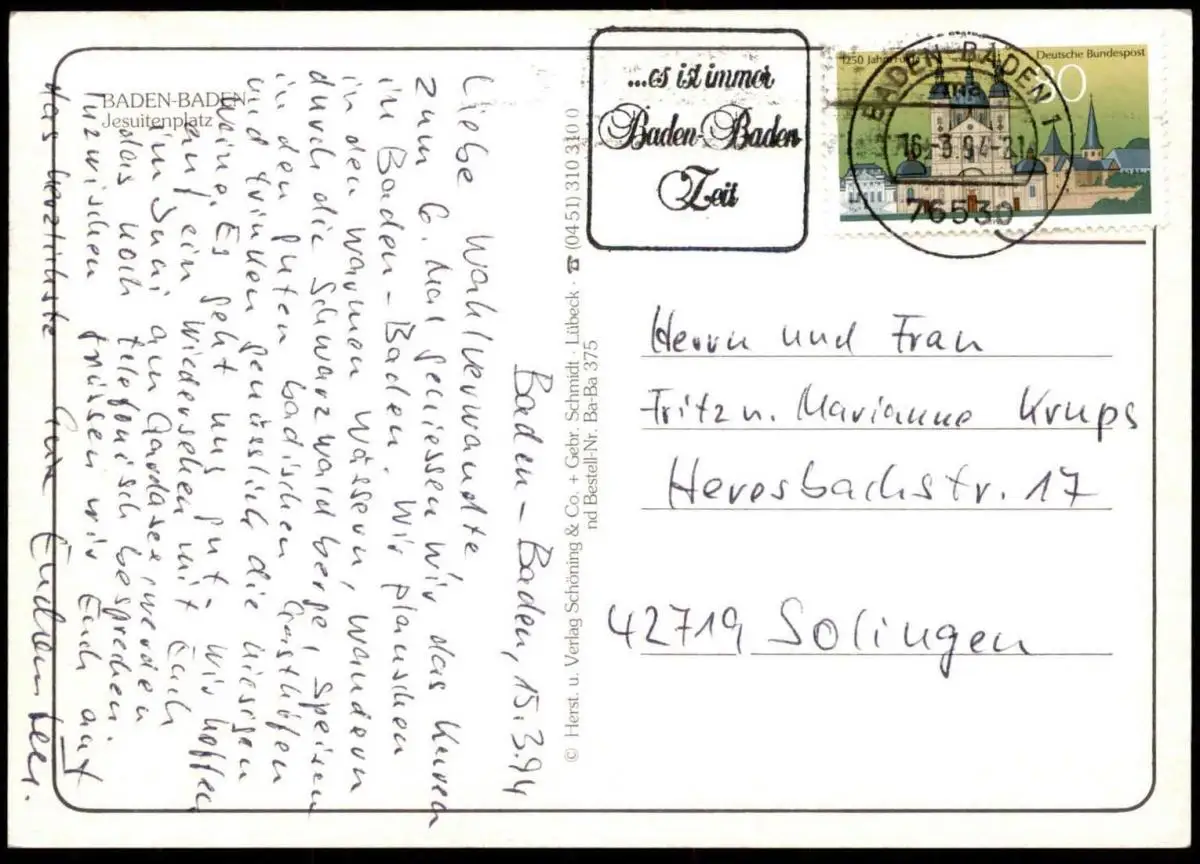 BADEN-BADEN
Jesuitenplatz
Baden-Baden, 15.3.94
Liebe Wahlverwandte,
zum 6. Mal geniessen wir das Kuren
in Baden-Baden. Wir planschen
in den warmen Wässern, wandern
durch die Schwarzwaldberge, speisen
in den guten badischen Gasthöfen
und trinken genüsslich die hiesigen
Weine. Es geht uns gut. Wir hoffen
auf ein Wiedersehen mit Euch
im Juni am Gardasee, werden
das noch telefonisch besprechen.
Inzwischen grüssen wir Euch auf
das herzlichste Eure
© Herst. u. Verlag Schöning & Co. + Gebr. Schmidt · Lübeck · ☎ (04 51) 310 310 0
nd Bestell-Nr. Ba-Ba 375
...es ist immer
Baden-Baden
Zeit
1250 Jahre Fulda
Deutsche Bundespost
80
BADEN-BADEN 1
16.-3.94-21
76530
Herrn und Frau
Fritz u. Marianne Krups
Heresbachstr. 17
42719 Solingen